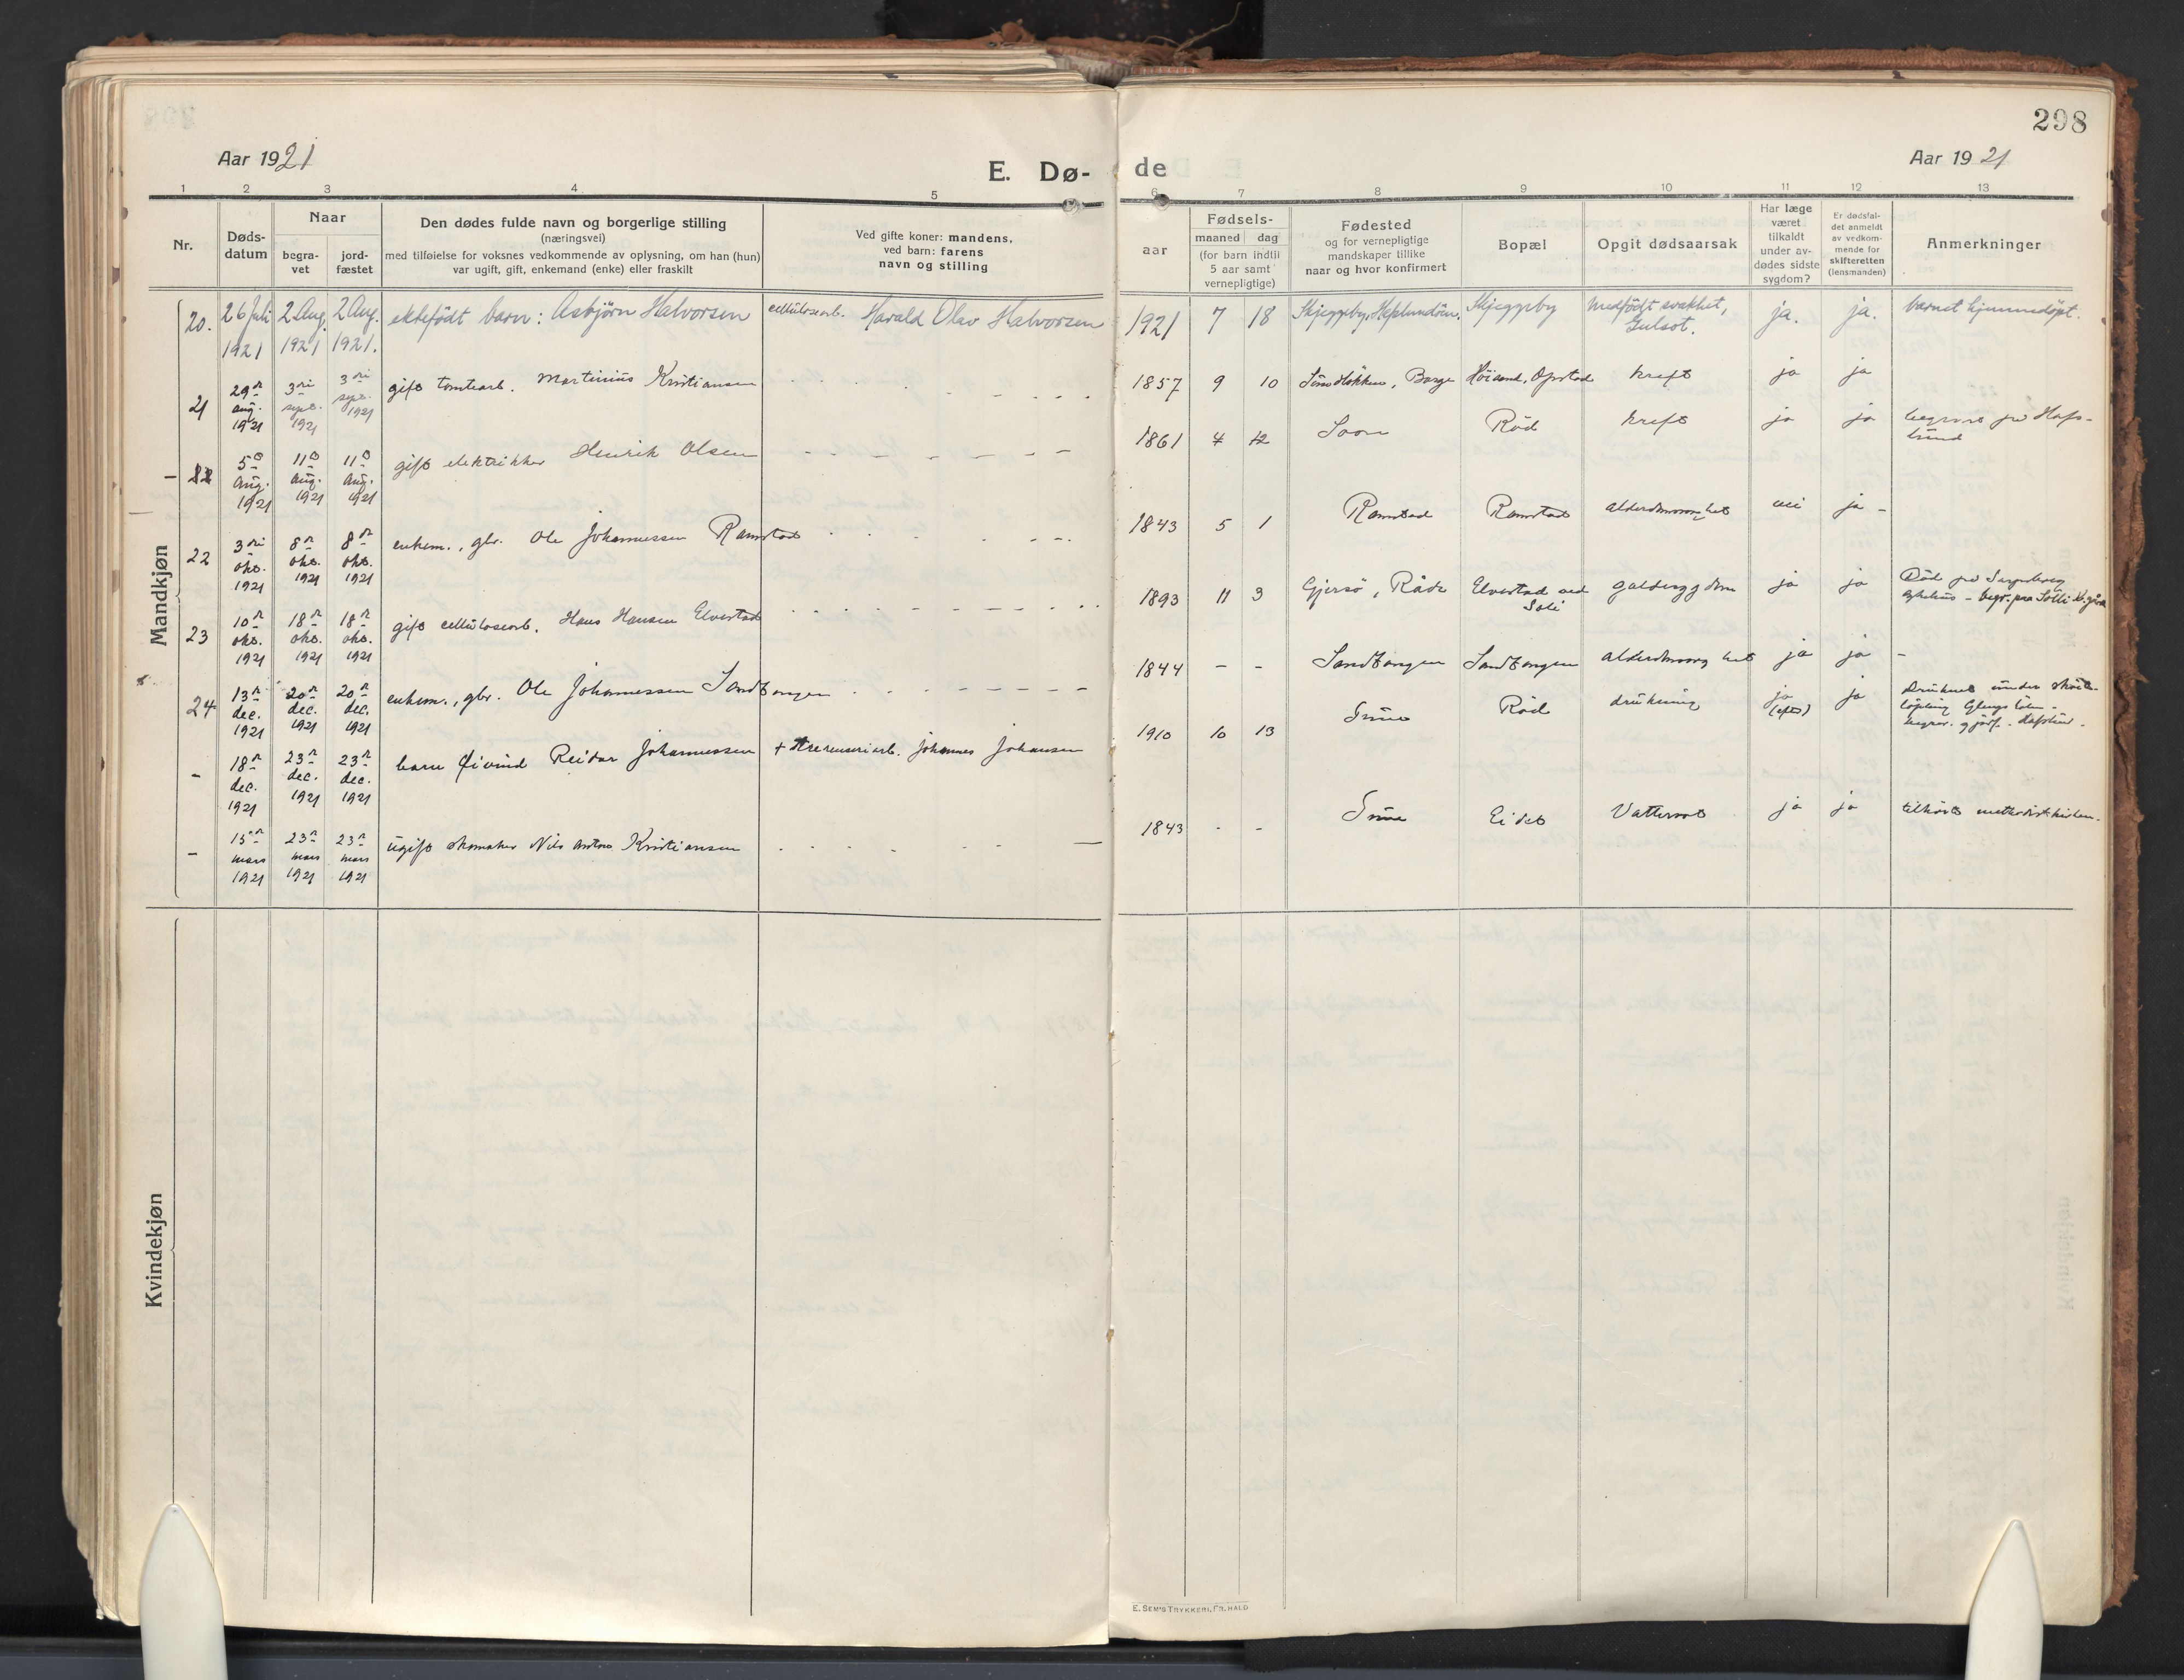 298
Aar 1921
E. Dø-
de
Aar 1921
1 2 3 4 5 6 7 8 9 10 11 12 13
Nr.
Døds-
datum
Naar
begra-
vet
jord-
fæstet
Den dødes fulde navn og borgerlige stilling
(næringsvei)
med tilføielse for voksnes vedkommende av oplysning, om han (hun)
var ugift, gift, enkemand (enke) eller fraskilt
Ved gifte koner: mandens,
ved barn: farens
navn og stilling
Fødsels-
aar
maaned dag
(for barn indtil
5 aar samt
vernepligtige)
Fødested
og for vernepligtige
mandskaper tillike
naar og hvor konfirmert
Bopæl
Opgit dødsaarsak
Har læge
været
tilkaldt
under av-
dødes sidste
sygdom?
Er dødsfal-
det anmeldt
av vedkom-
mende for
skifteretten
(lensmanden)
Anmerkninger
Mandkjøn
20. 26 Juli 1921 2 Aug. 1921 2 Aug. 1921. ektefödt barn: Asbjörn Halvorsen cellulosearb. Harald Olav Halvorsen 1921 7 18 Skjeggeby, Skjeggeby Medfödt svakhet, Gulsot. ja. ja. barnet hjemmedöpt.
21 29de aug. 1921 3die sept. 1921 3die sept. 1921 gift tomtearb. Martinius Kristiansen 1857 9 10 Borge Höisand, Opstad kreft ja ja
5te aug. 1921 11te aug. 1921 11te aug. 1921 gift elektriker Henrik Olsen 1861 4 12 Soon Röd kreft ja ja begravet på Hafs-
lund
22 3die okt. 1921 8de okt. 1921 8de okt. 1921 enkem., gbr. Ole Johannessen Ramstad 1843 5 1 Ramstad Ramstad alderdomssvaghet nei ja -
23 10de okt. 1921 18de okt. 1921 18de okt. 1921 gift cellulosearb. Hans Hansen Elvestad 1893 11 3 Gjersö, Råde Elvestad ved Soli galdesygdom ja ja Död på Sarpsborg
sykehus - begr. på Solli k.gård
24 13de dec. 1921 20de dec. 1921 20de dec. 1921 enkem., gbr. Ole Johannessen Sandtangen 1844 - - Sandtangen Sandtangen alderdomssvaghet ja ja -
- 18de dec. 1921 23de dec. 1921 23de dec. 1921 barn Øivind Reidar Johannessen + Johannes Johansen 1910 10 13 Tune Röd drukning ja (efter) ja Druknet under sköite-
löpning Glengshölen -
begrav. Hafslund.
- 15de mars 1921 23de mars 1921 23de mars 1921 ugift skomaker Nils Anton Kristiansen 1843 - - Tune Eidet Vattersot ja ja tilhörte methodistkirken.
Kvindekjøn
E. SEM'S TRYKKERI, FR.HALD